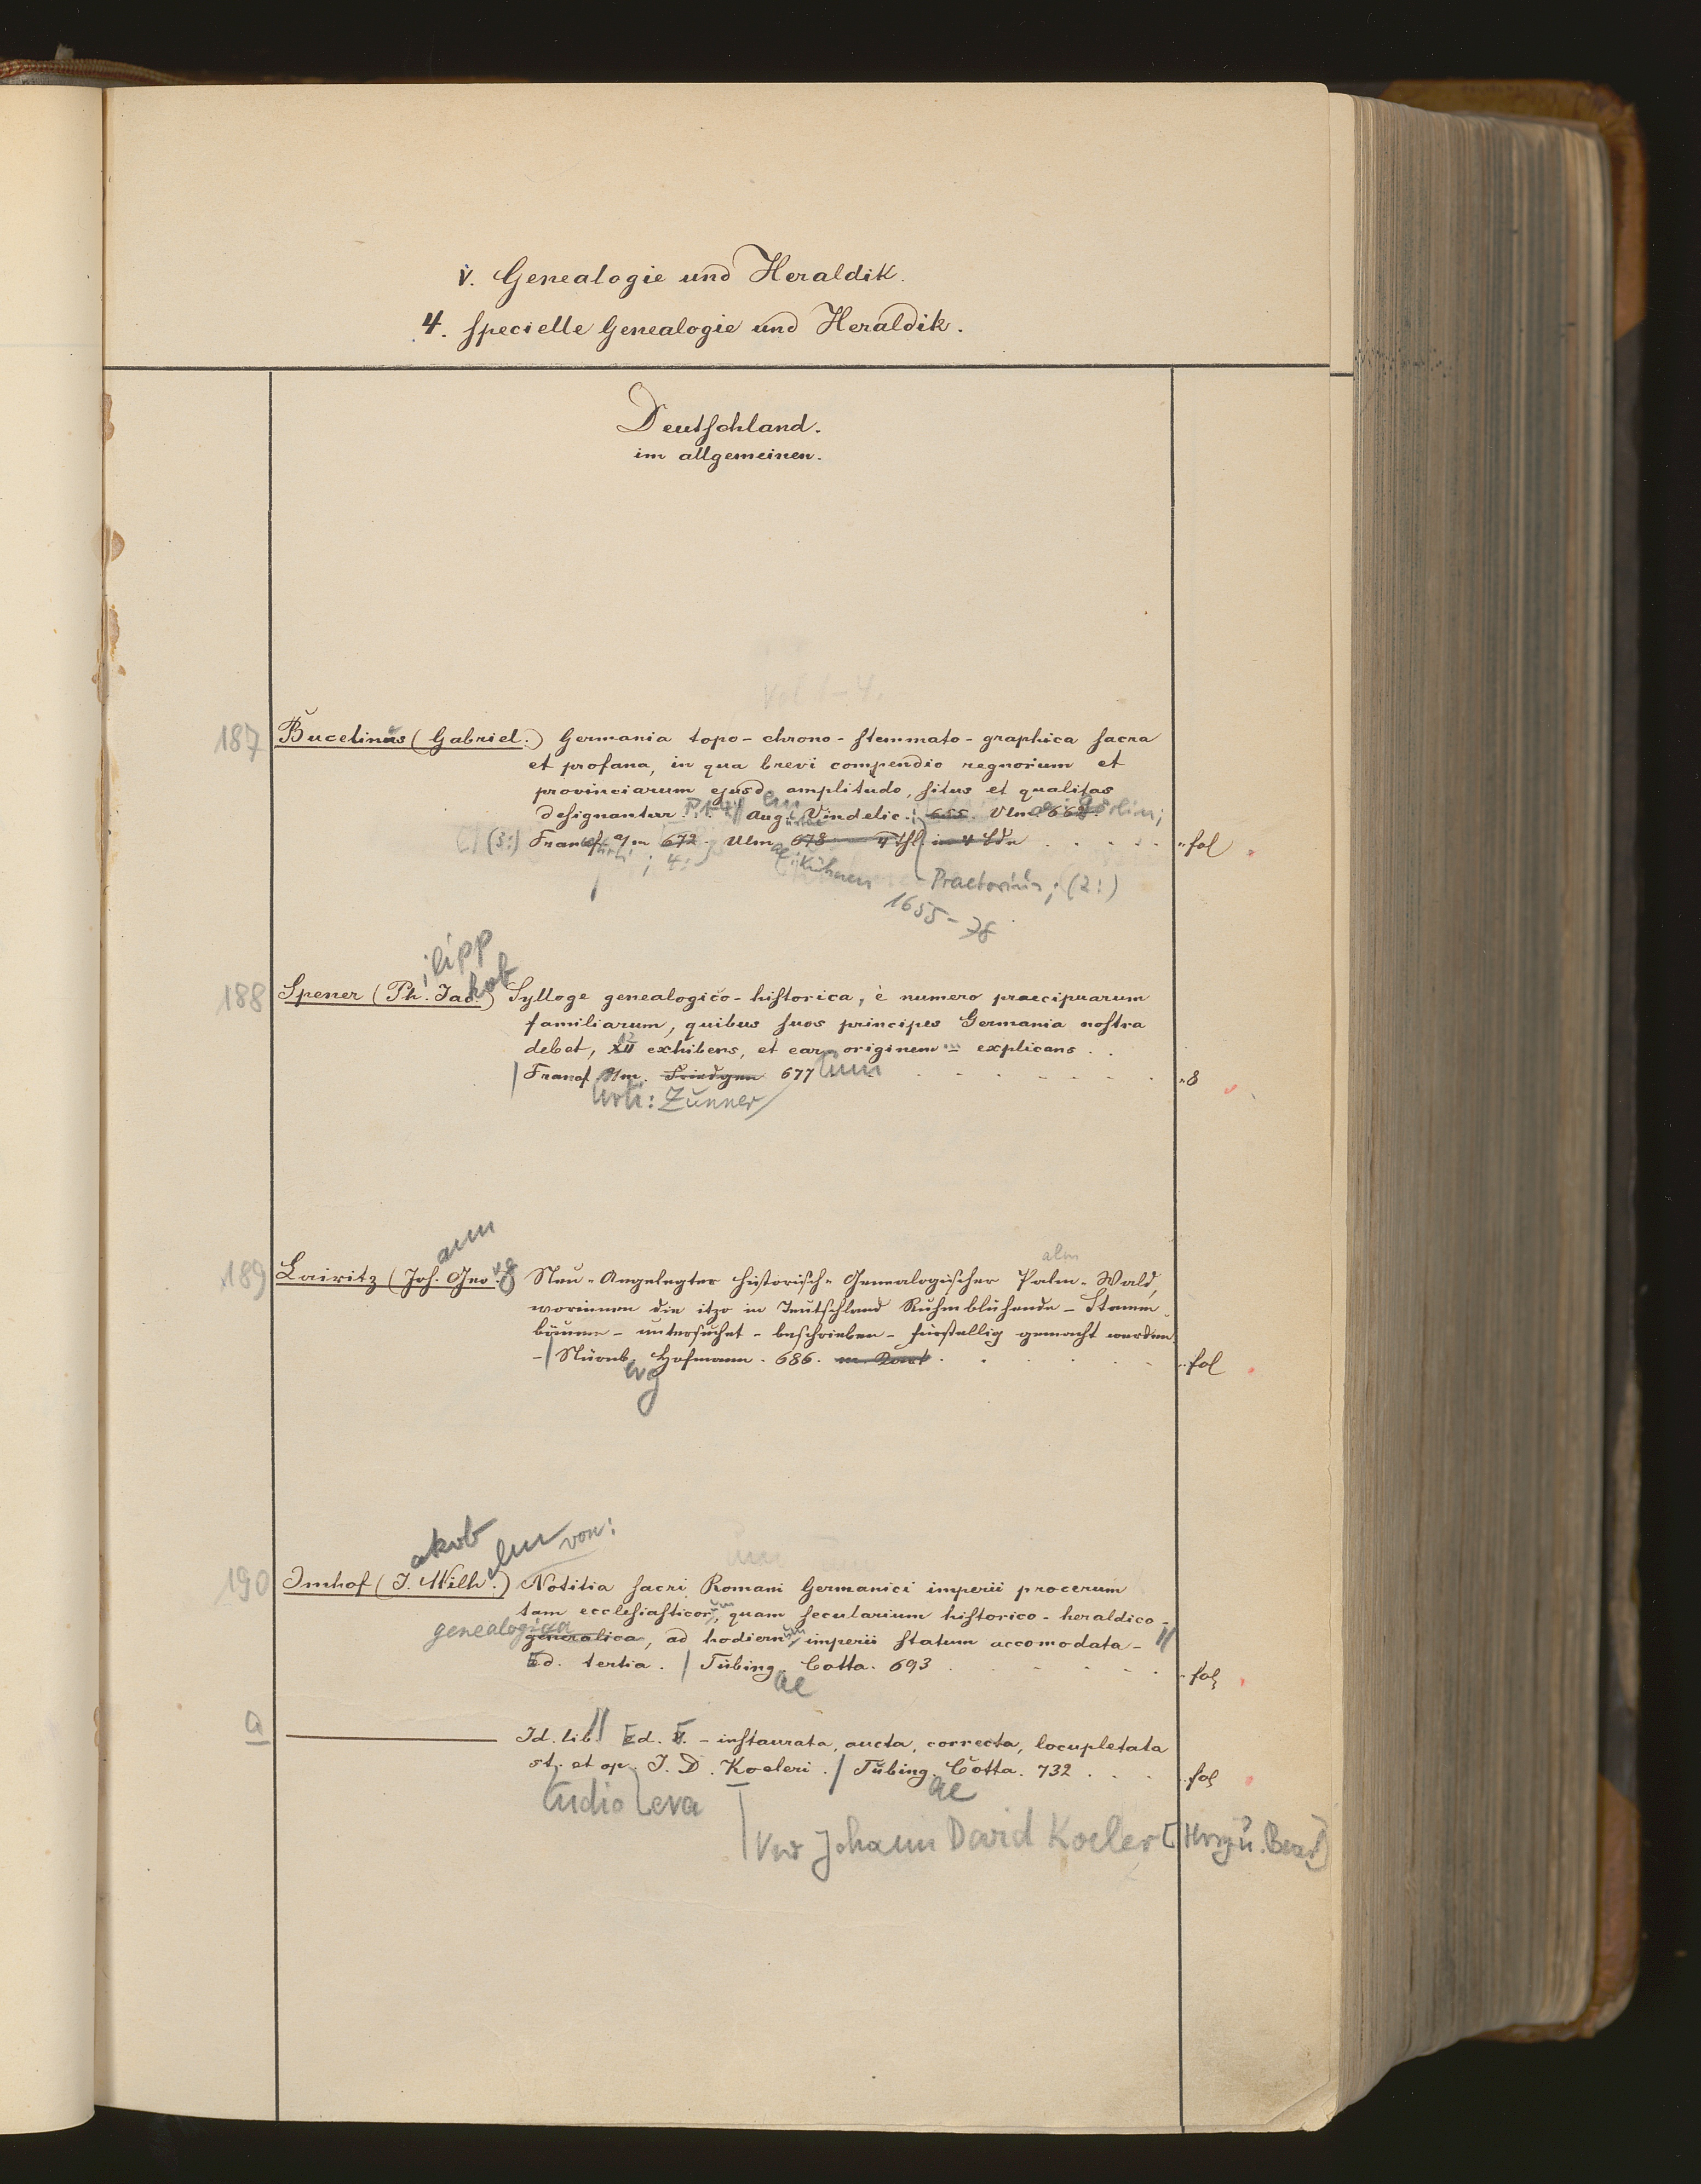 V. Genealogie und Heraldik.
4. Specielle Genealogie und Heraldik.
Deutschland.
im allgemeinen.
187 Bucelinus (Gabriel.) Germania topo-chrono-stemmato-graphica sacra
et profana, in qua brevi compendio regnorum et
provinciarum ejusd. amplitudo, situs et qualitas
designantur. P. 1-4 Aug. Vindelic. 655. Ulm 662.
(3:) Francf. a/m 672. Ulm 678 4 Thl in 4 Bdn fol
; 4: Kühnen Praetorius; (2:)
1655-78
ilipp
188 Spener (Ph. Jac.kob) Sylloge genealogico-historica, è numero praecipuarum
familiarum, quibus suos principes Germania nostra
debet, XII 12 exhibens, et ear. originem explicans . .
Francf. a/m. Friedgen 677 8
furti: Zunner
ann
alm
189 Lairitz (Joh. Georg) Neu-Angelegter historisch-Genealogischer Palm-Wald,
worinnen die itzo in Teutschland Ruhmblühende-Stamm-
bäume-untersuchet-beschrieben-fürstellig gemacht werden.
-/Nürnb. Hofmann. 686. m. Port. fol
erg
akob elm von:
190 Imhof (J. Wilh.) Notitia sacri Romani Germanici imperii procerum
tam ecclesiasticor.um, quam secularium historico-heraldico-
genealogica generalica, ad hodiernum imperii statum accomodata- //
Ed. tertia. / Tübing. Cotta. 693 fol
ae
a Id. lib. // Ed. V. - instaurata, aucta, correcta, locupletata
st. et op. J. D. Koeleri. / Tübing. Cotta. 732 . . . fol
tudio era ae
Vw Johann David Koeler [Hrsg u. Bearb]